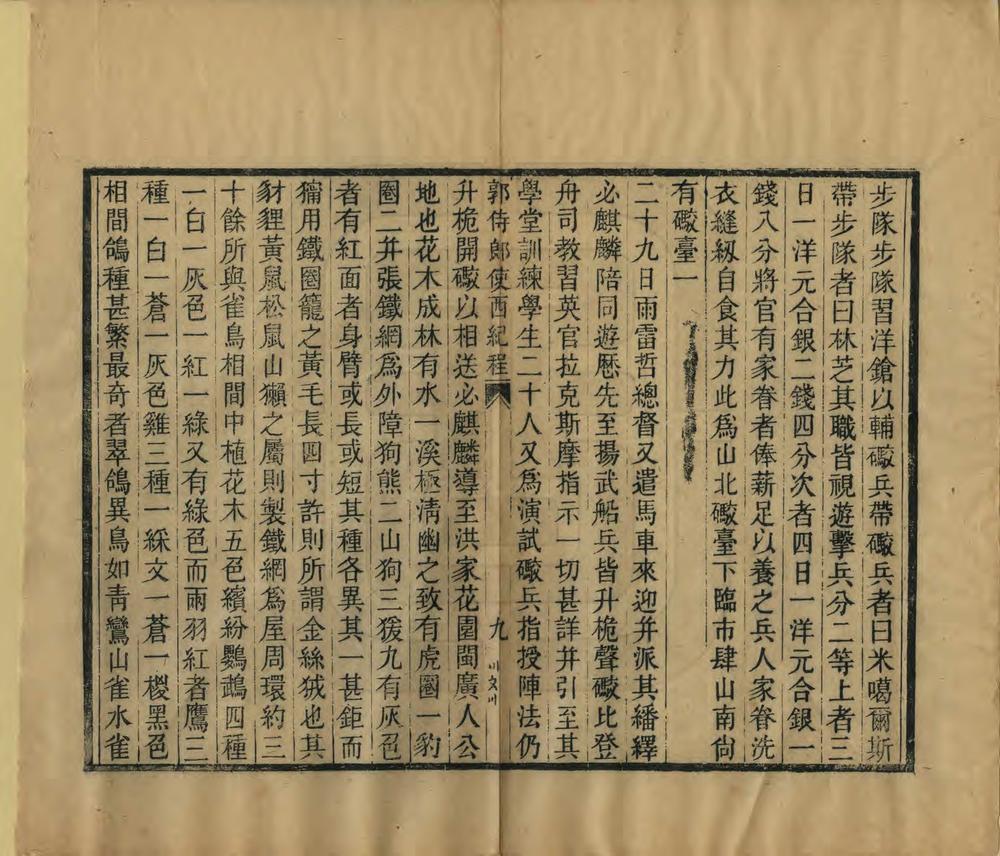 步隊步隊習洋鎗以輔礮兵帶礮兵者曰米噶爾斯
帶步隊者曰林芝其職皆視遊擊兵分二等上者三
日一洋元合銀二錢四分次者四日一洋元合銀一
錢八分將官有家眷者俸薪足以養之兵人家眷洗
衣縫紉自食其力此爲山北礮臺下臨市肆山南尙
有礮臺一
二十九日雨雷哲總督又遣馬車來迎并派其繙繹
必麒麟陪同遊歷先至揚武船兵皆升桅聲礮比登
舟司教習英官拉克斯摩指示一切甚詳并引至其
學堂訓練學生二十人又爲演試礮兵指授陣法仍
郭侍郎使西紀程
九
升桅開礮以相送必麒麟導至洪家花園閩廣人公
地也花木成林有水一溪極淸幽之致有虎圈一豹
圈二并張鐵網爲外障狗熊二山狗三猨九有灰色
者有紅面者身臂或長或短其種各異其一甚鉅而
獨用鐵圈籠之黃毛長四寸許則所謂金絲狨也其
豺貍黃鼠松鼠山獺之屬則製鐵網爲屋周環約三
十餘所與雀鳥相間中植花木五色繽紛鸚鵡四種
一白一灰色一紅一綠又有綠色而兩羽紅者鷹三
種一白一蒼一灰色雞三種一綵文一蒼一椶黑色
相間鴿種甚繁最奇者翠鴿異鳥如靑鸞山雀水雀